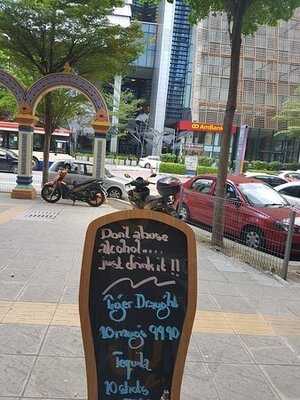 AmBank
Dont abuse
alcohol....
just drink it !!
Tiger Draught
10 mug's 99.90
Tequila
10 shots